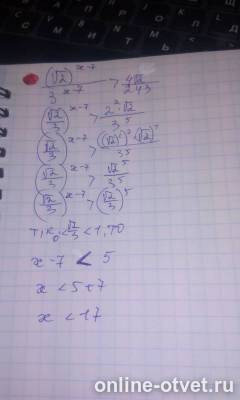 (√2)^(x-7) / 3^(x-7) > 4√2 / 243
(√2/3)^(x-7) > 2²·√2 / 3⁵
(√2/3)^(x-7) > ((√2)²)²·√2 / 3⁵
(√2/3)^(x-7) > √2⁵ / 3⁵
(√2/3)^(x-7) > (√2/3)⁵
т,к, 0<√2/3<1, то
x-7 < 5
x < 5+7
x < 17
online-otvet.ru